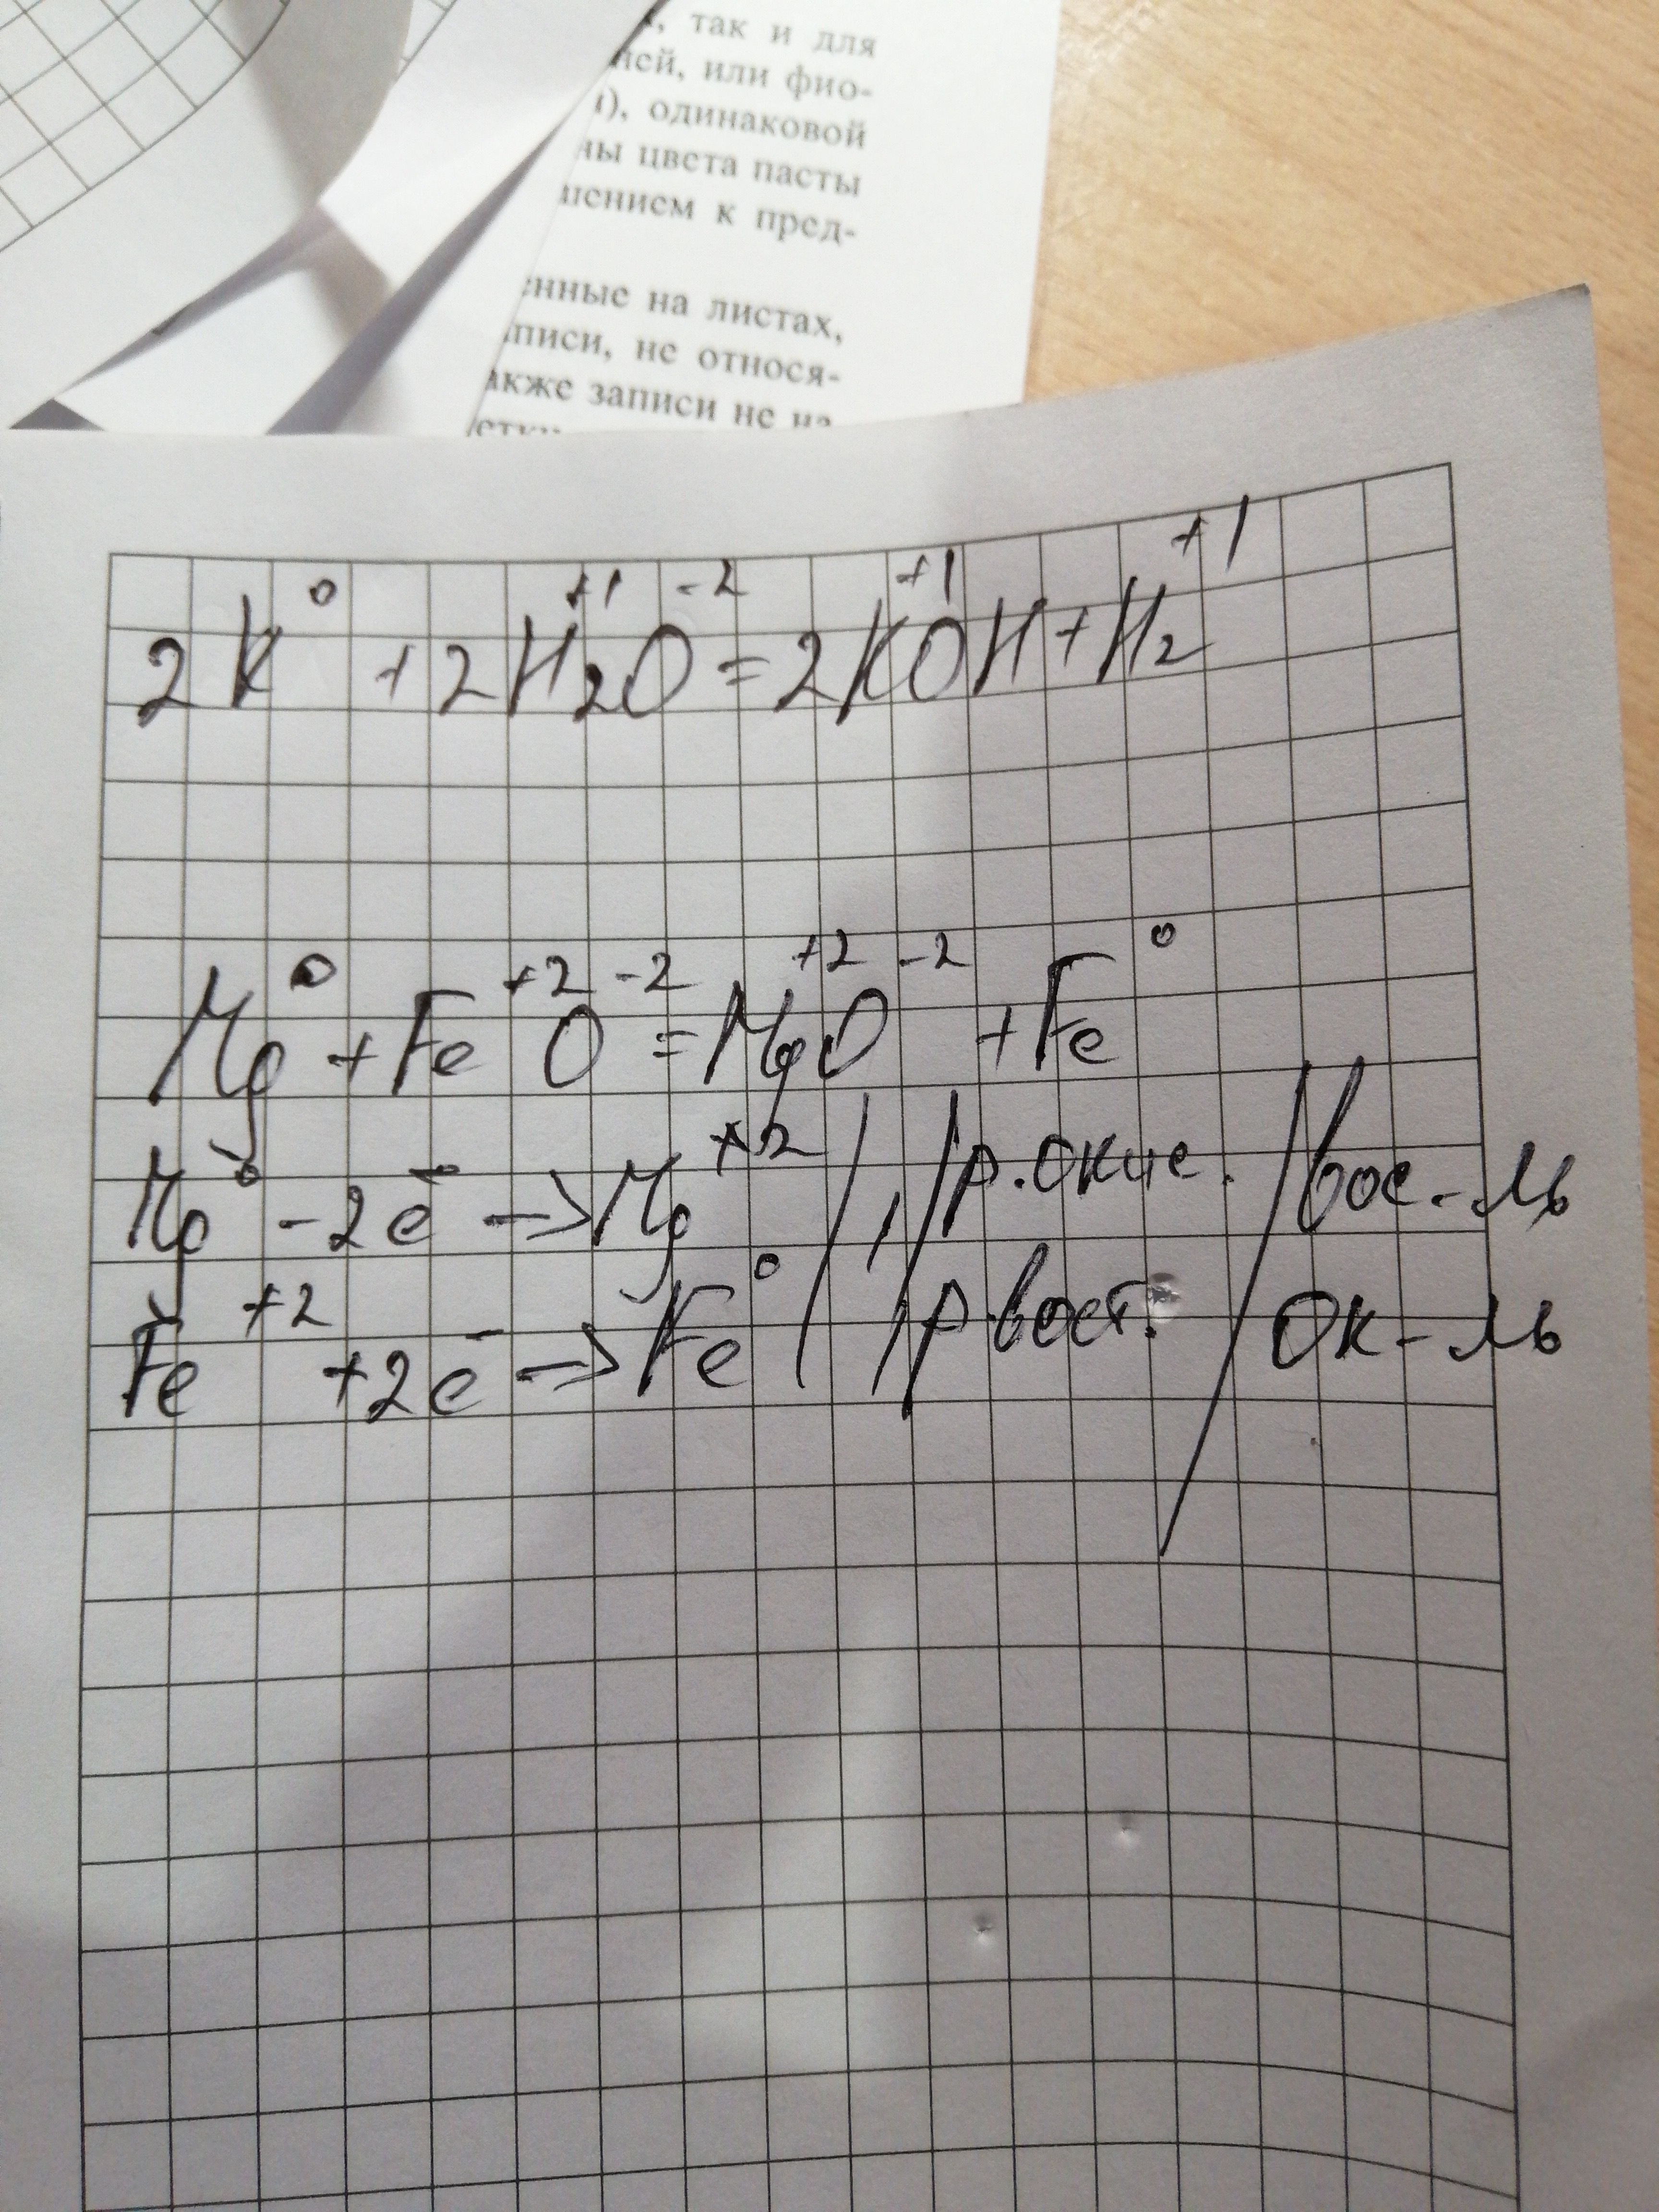 , так и для
ней, или фио-
), одинаковой
ны цвета пасты
шением к пред-
енные на листах,
писи, не относя-
акже записи не на
етку
2K⁰ + 2H₂⁺¹O⁻² = 2K⁺¹OH + H₂⁺¹
Mg⁰ + Fe⁺²O⁻² = Mg⁺²O⁻² + Fe⁰
Mg⁰ - 2ē → Mg⁺² / 1 / р. окис. / вос-ль
Fe⁺² + 2ē → Fe⁰ / 1 / р. вост. / Ок-ль